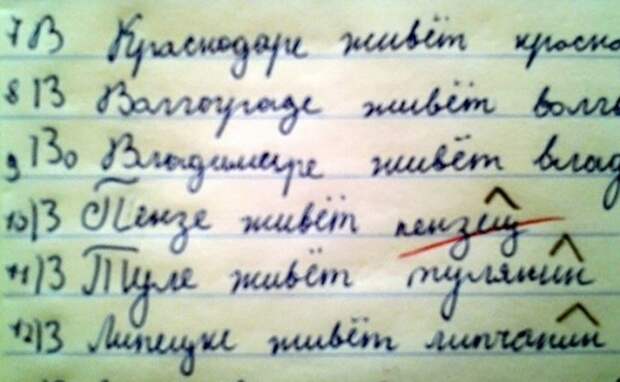 7 В Краснодаре живёт красно
8) В Волгограде живёт волго
9 Во Владимире живёт влад
10) В Пензе живёт пензещ
11) В Туле живёт тулянин
12) В Липецке живёт липчанин